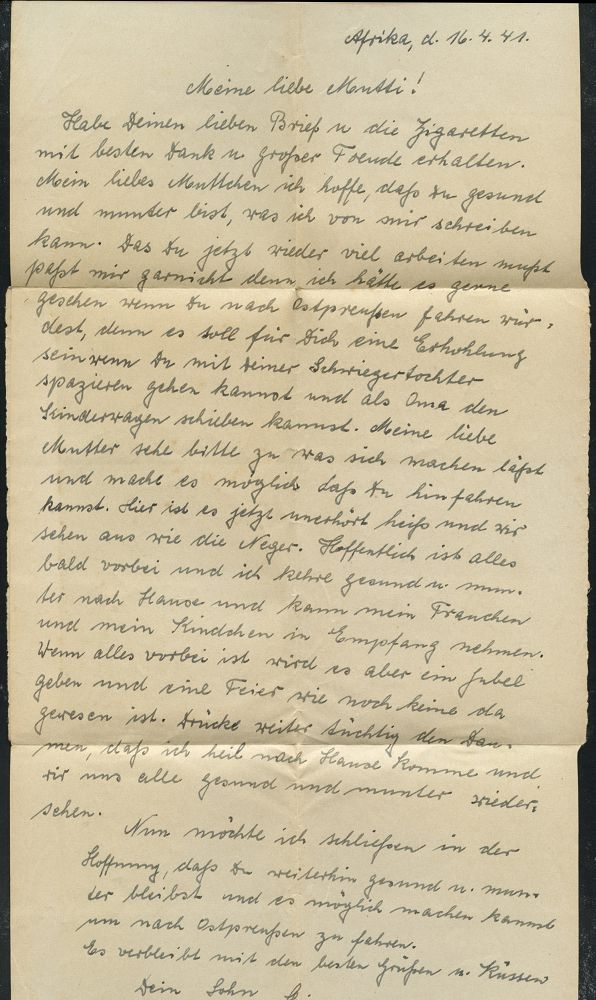 Afrika, d. 16.4.41.
Meine liebe Mutti!
Habe Deinen lieben Brief u die Zigaretten
mit besten Dank u großer Freude erhalten.
Mein liebes Muttchen ich hoffe, daß Du gesund
und munter bist, was ich von mir schreiben
kann. Das Du jetzt wieder viel arbeiten mußt
paßt mir garnicht denn ich hätte es gerne
gesehen wenn Du nach Ostpreußen fahren wür-
dest, denn es soll für Dich eine Erhohlung
sein wenn Du mit Deiner Schwiegertochter
spazieren gehen kannst und als Oma den
Kinderwagen schieben kannst. Meine liebe
Mutter sehe bitte zu was sich machen läßt
und mache es möglich daß Du hinfahren
kannst. Hier ist es jetzt unerhört heiß und wir
sehen aus wie die Neger. Hoffentlich ist alles
bald vorbei und ich kehre gesund u. mun-
ter nach Hause und kann mein Frauchen
und mein Kindchen in Empfang nehmen.
Wenn alles vorbei ist wird es aber ein Jubel
geben und eine Feier wie noch keine da
gewesen ist. Drücke weiter tüchtig den Dau-
men, daß ich heil nach Hause komme und
wir uns alle gesund und munter wieder-
sehen.
Nun möchte ich schließen in der
Hoffnung, daß Du weiterhin gesund u. mun-
ter bleibst und es möglich machen kannst
um nach Ostpreußen zu fahren.
Es verbleibt mit den besten Grüßen u. Küssen
Dein Sohn